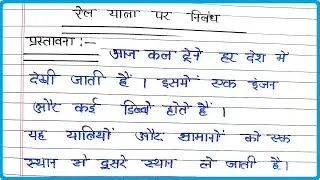 रेल यात्रा पर निबंध
प्रस्तावना :-
आज कल ट्रेने हर देश में
देखी जाती हैं । इसमें एक इंजन
और कई डिब्बे होते हैं ।
यह यात्रियों और सामानों को एक
स्थान से दूसरे स्थान ले जाती है।